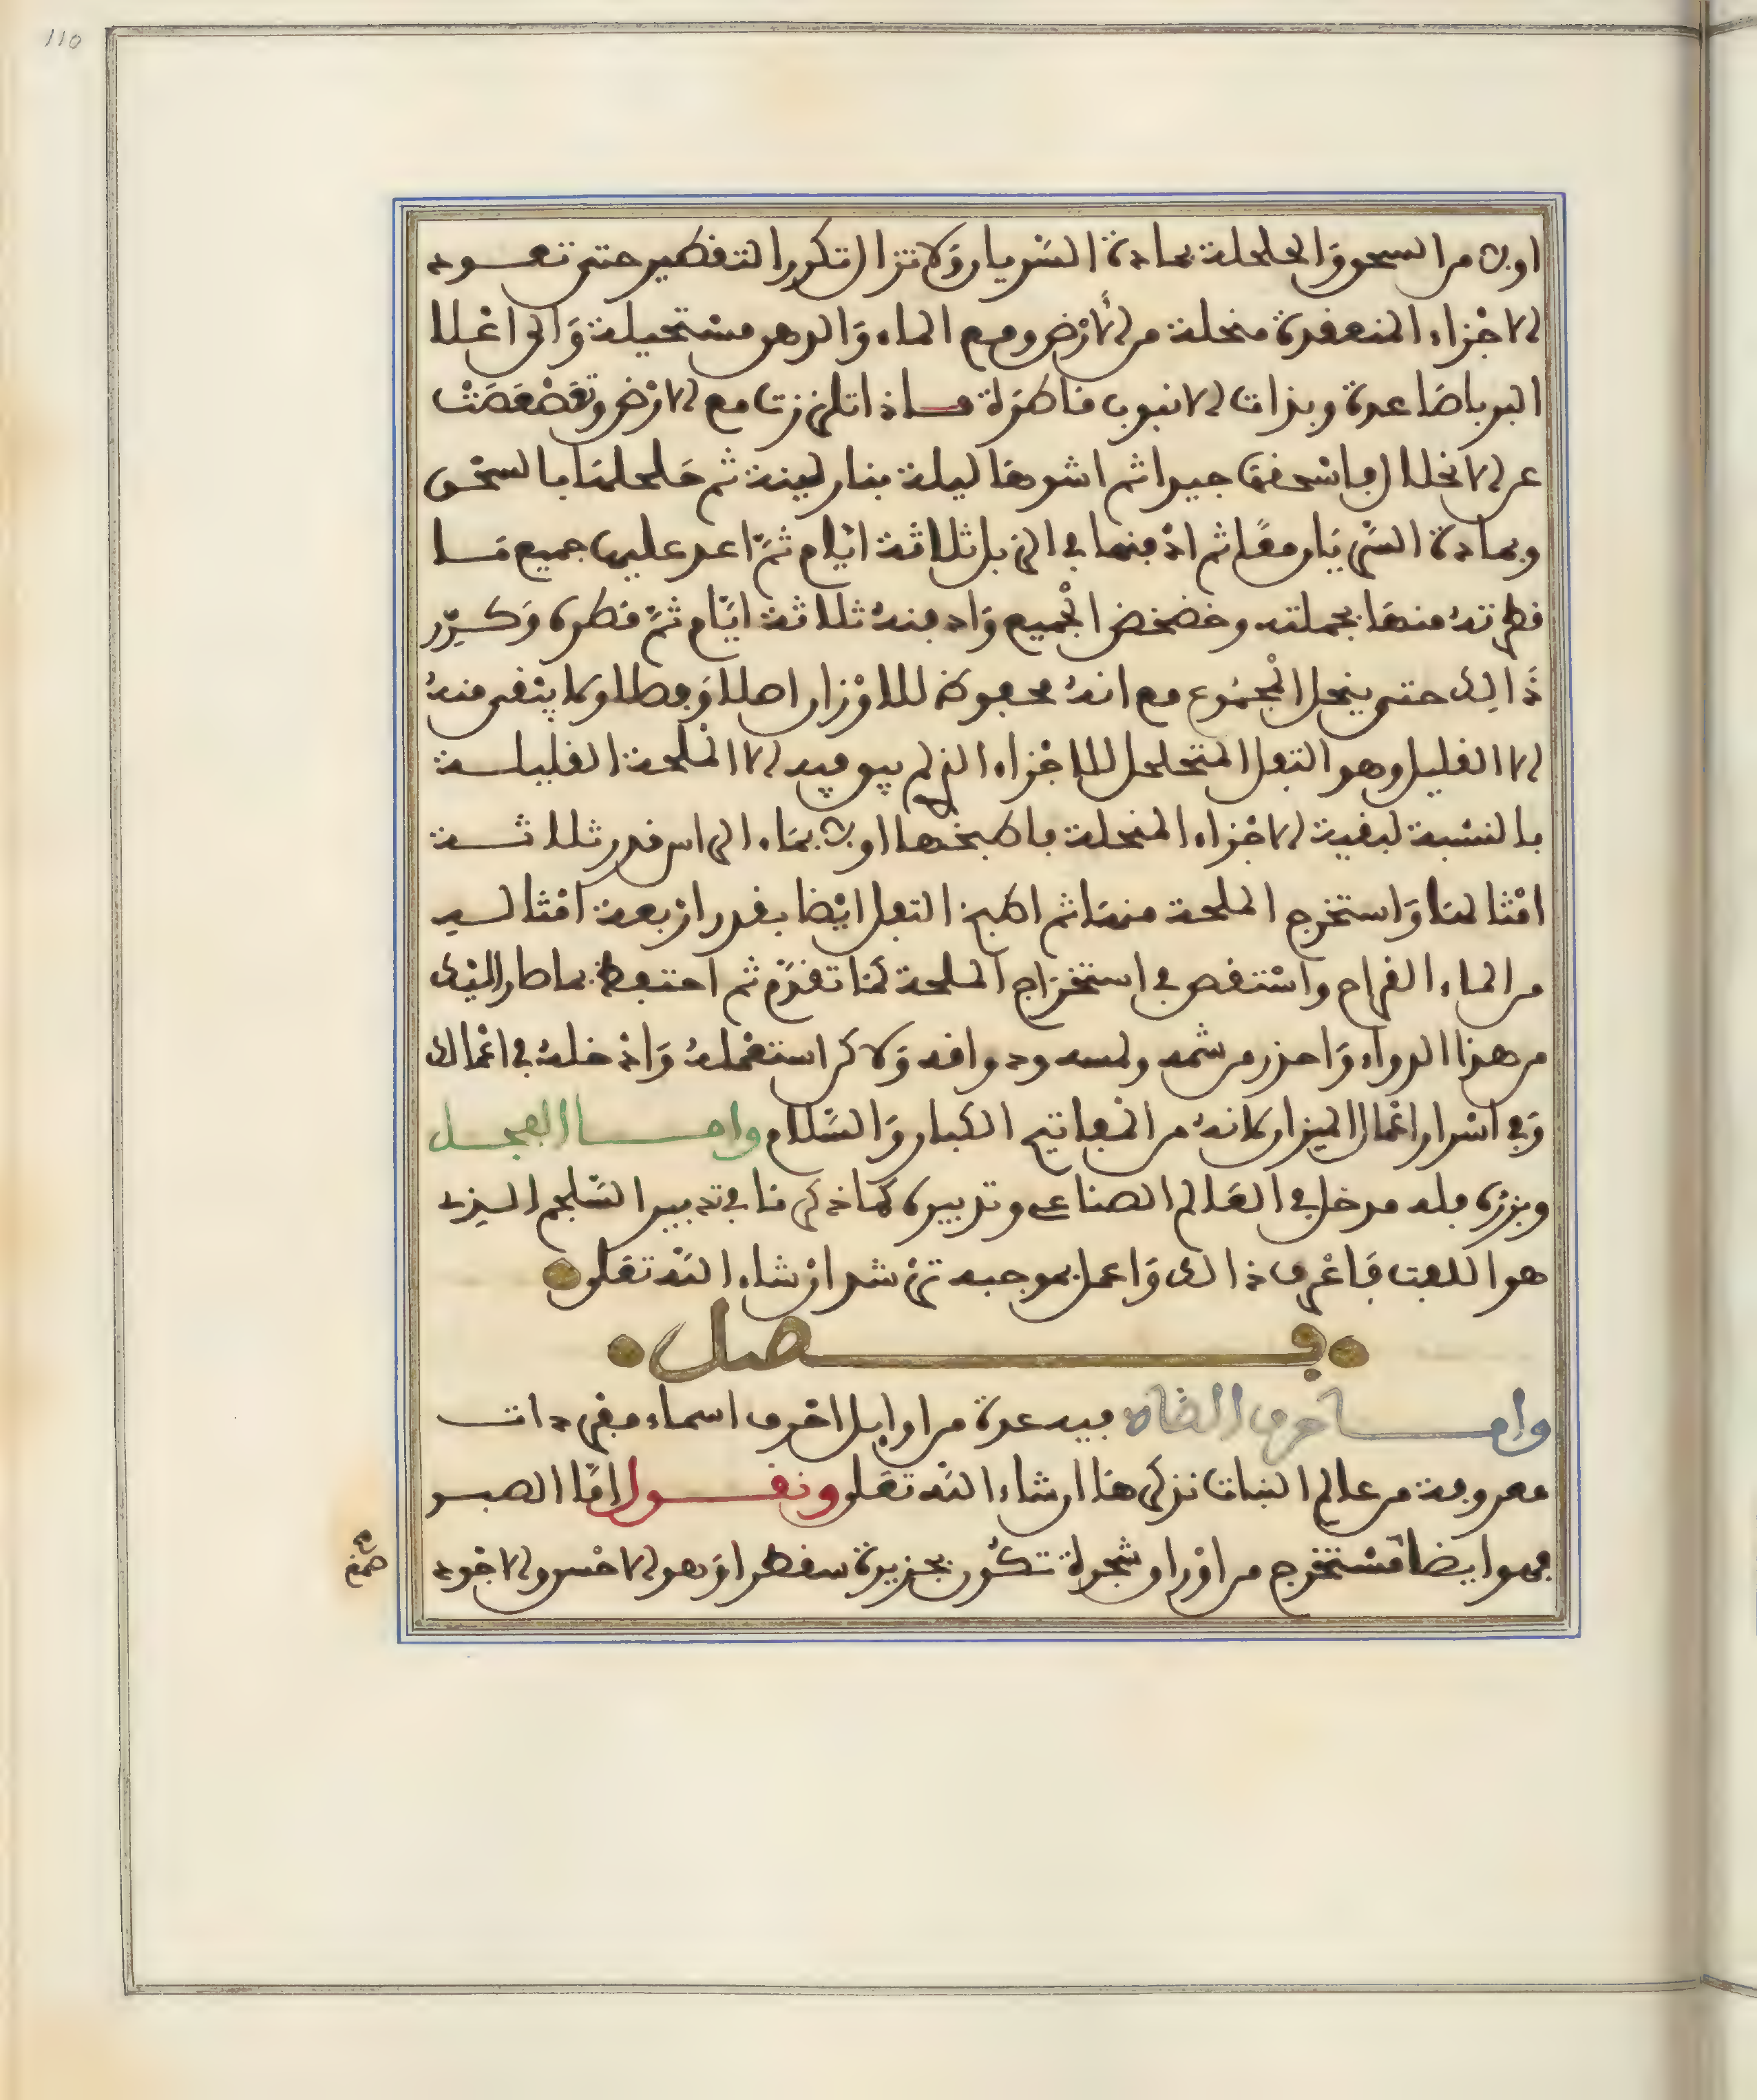 110
اولا من السحق والحلحلة بمادة السريان ولا تزال تكرر التقطير حتى تعود
الاجزاء المنعقدة منحلة من الأرض ومع الماء والدهن مستحيلة والى اعلا
البربا صاعدة وبذات الانبوب قاطرة فاذا تلززت مع الارض وتعصعصت
عن الانحلال فاسحقها جيدا ثم اشوها ليلة بنار لينة ثم حلحلها بالسحق
وبمادة السريان معا ثم ادفنها في الزبل ثلاثة ايام ثم اعد عليها جميع ما
قطرته منها بجملته وخضخض الجميع وادفنه ثلاثة ايام ثم قطره وكرر
ذالك حتى ينحل المجموع مع انه محفوظ للاوزان اصلا وفصلا ولا يبقى منه
الا القليل وهو الثفل المتحلحل للاجزاء الذي لم يبق فيه الا الملحة القليلة
بالنسبة لبقية الاجزاء المنحلة فاطبخها اولا بماء الراس قدر ثلاثة
امثالها واستخرج الملحة منها ثم اطبخ الثفل ايضا بقدر اربعة امثاله
من الماء القراح واستقص في استخراج الملحة كما تقدم ثم احتفظ بما صار اليك
من هذا الدواء واحذر من شمه ولمسه وذواقه ولاكن استعمله وادخله في اعمالك
وفي اسرار اعمال الميزان لانه من المفاتيح الكبار والسلام واما الفجل
وبزره فله مدخل في العالم الصناعي وتدبيره كما ذكرنا في تدبير السلجم الذي
هو اللفت فاعرف ذالك واعمل بموجبه ترشد ان شاء الله تعلى
فصل
واما حرف الضاد ففيه عدة من اوايل احرف اسماء مفردات
معروفة من عالم النبات نذكرها ان شاء الله تعلى ونقول اما الصبر
فهو ايضا مستخرج من اوراق شجرة تكون بجزيرة سقطرا وهو الاحسن والاجود
صمغ